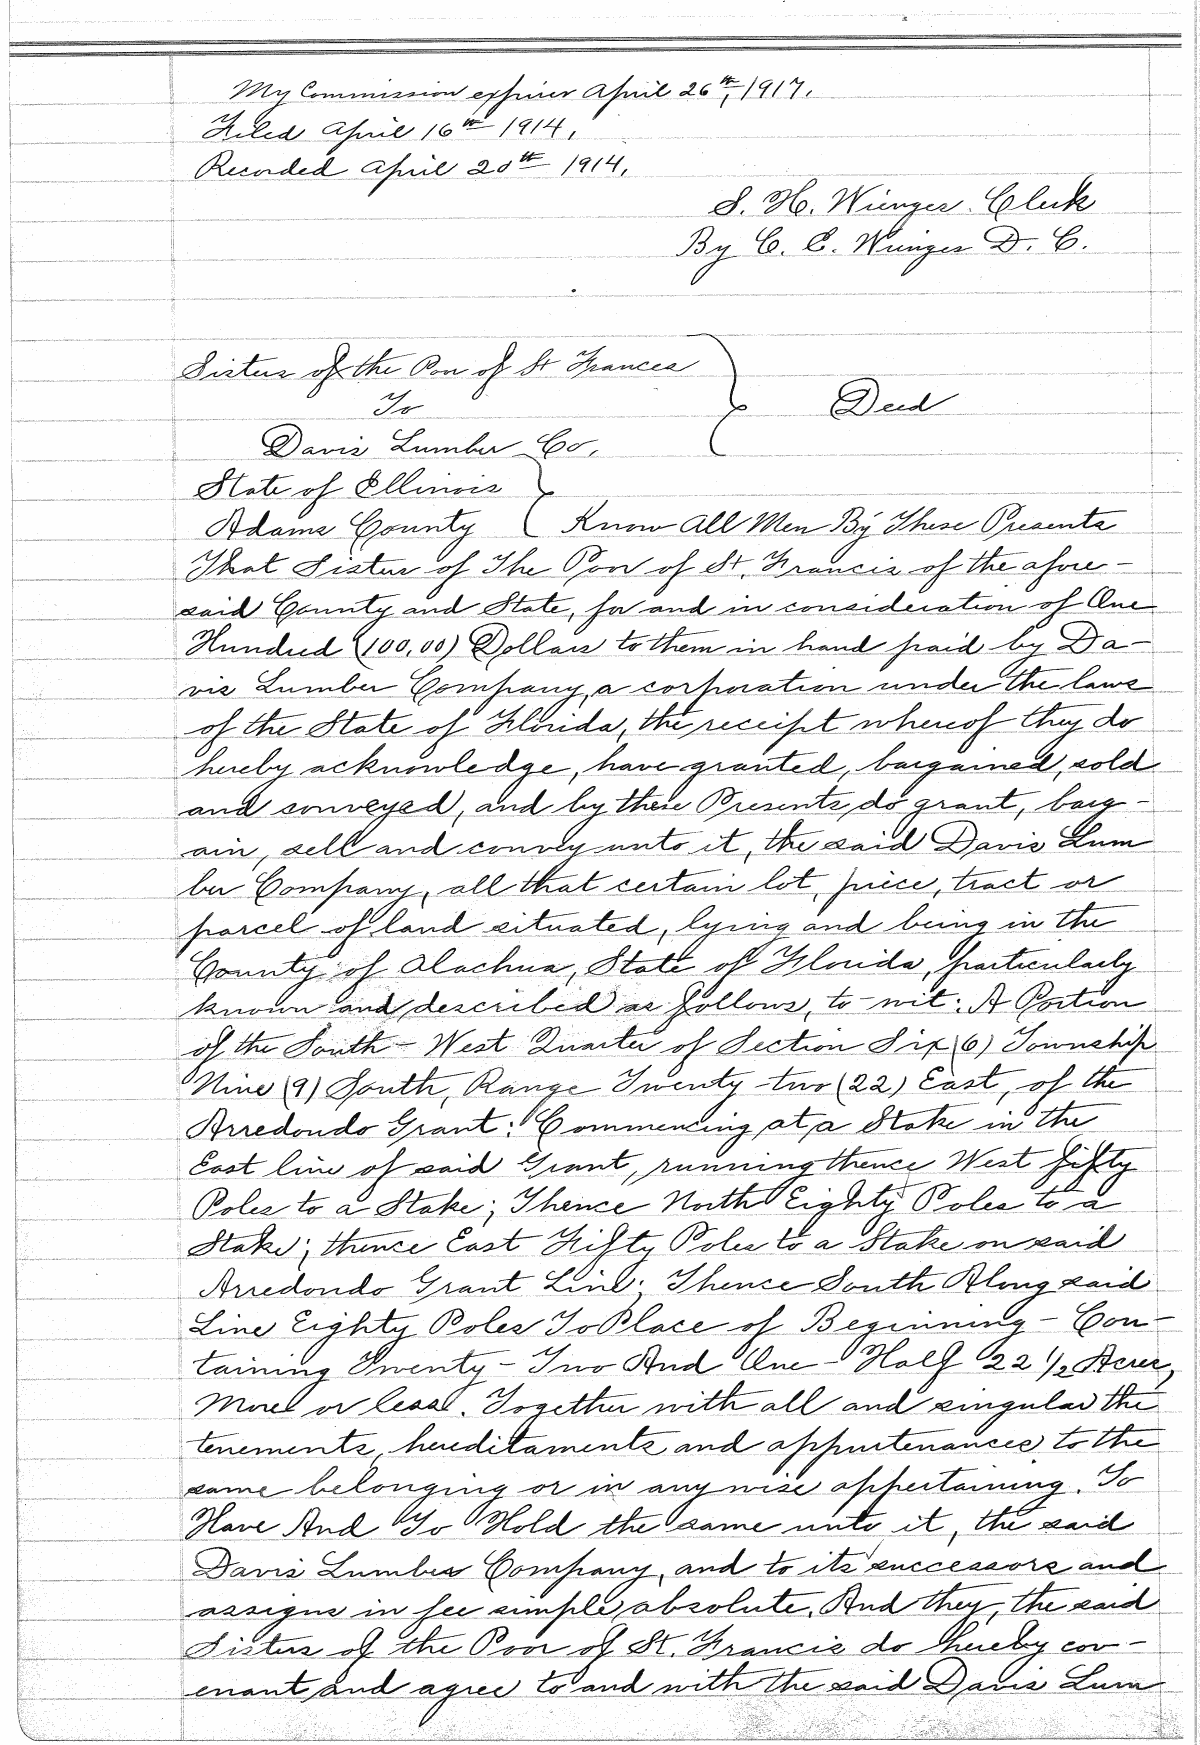 My Commission expires April 26th, 1917.
Filed April 16th 1914,
Recorded April 20th 1914,
S. H. Wienges. Clerk
By C. E. Wienges D. C.
Sisters of the Poor of St Frances
To
Deed
Davis Lumber Co,
State of Illinois
Adams County Know All Men By These Presents
That Sisters of The Poor of St. Francis of the afore-
said County and State, for and in consideration of One
Hundred (100,00) Dollars to them in hand paid by Da-
vis Lumber Company, a corporation under the laws
of the State of Florida, the receipt whereof they do
hereby acknowledge, have granted, bargained, sold
and conveyed, and by these Presents, do grant, barg-
ain, sell and convey unto it, the said Davis Lum
ber Company, all that certain lot, piece, tract or
parcel of land situated, lying and being in the
County of Alachua, State of Florida, particularly
known and described as follows, to-wit: A Portion
of the South-West Quarter of Section Six (6) Township
Nine (9) South, Range Twenty-two (22) East, of the
Arredondo Grant: Commencing at a Stake in the
East line of said Grant, running thence West fifty
Poles to a Stake; Thence North Eighty Poles to a
Stake; thence East Fifty Poles to a Stake on said
Arredondo Grant Line; Thence South Along said
Line Eighty Poles To Place of Beginning - Con-
taining Twenty-Two And One-Half 22 1/2 Acres,
More or less. Together with all and singular the
tenements, hereditaments and appurtenances to the
same belonging or in any wise appertaining. To
Have And To Hold the same unto it, the said
Davis Lumber Company, and to its successors and
assigns in fee simple, absolute. And they, the said
Sisters of the Poor of St. Francis do hereby cov-
enant and agree to and with the said Davis Lum